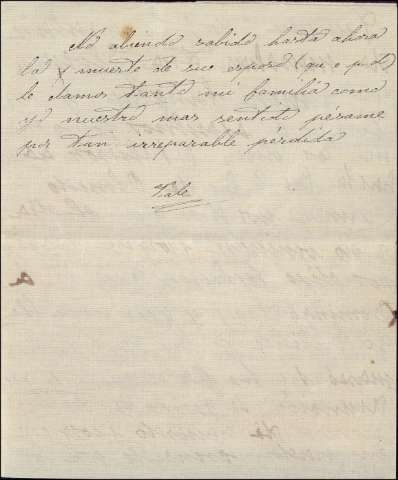 No abiendo sabido hasta ahora
la muerte de su esposo (que e p d)
le damos tanto mi familia como
yo nuestro mas sentido pésame
por tan irreparable pérdida
Vale